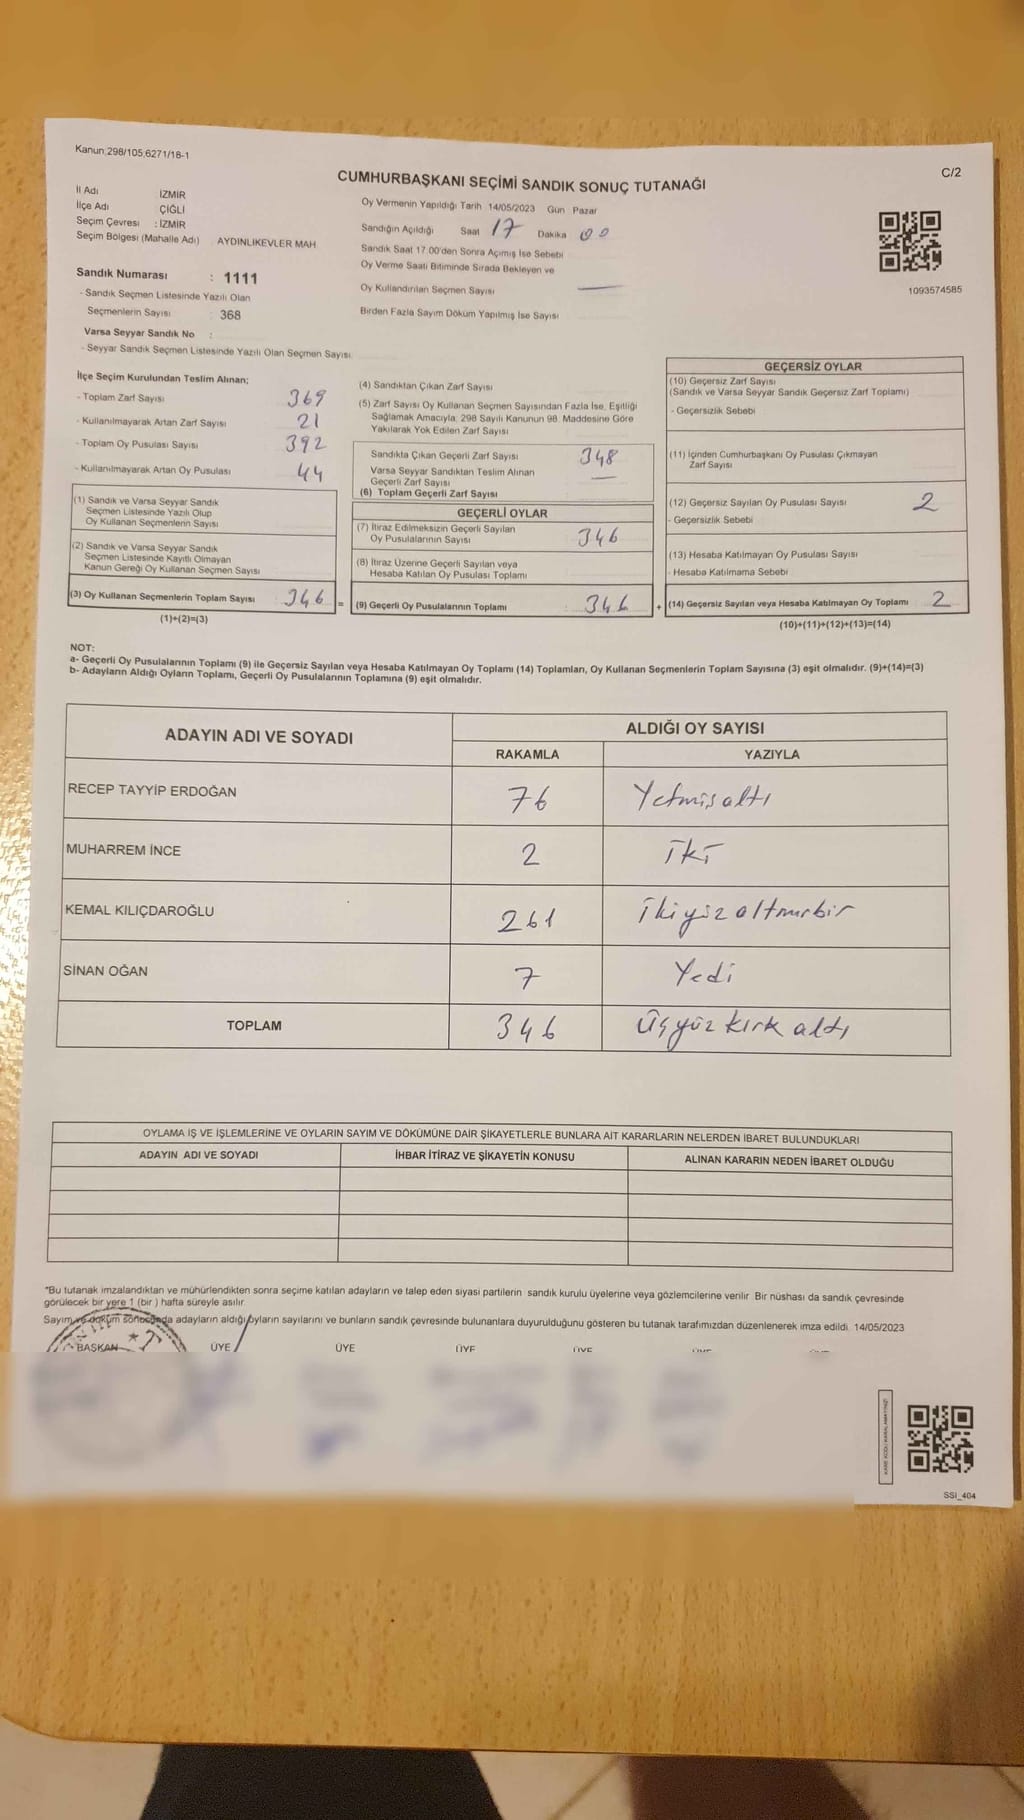 Kanun:298/105;6271/18-1
C/2
CUMHURBAŞKANI SEÇİMİ SANDIK SONUÇ TUTANAĞI
İl Adı İZMİR
İlçe Adı ÇİĞLİ
Seçim Çevresi : İZMİR
Seçim Bölgesi (Mahalle Adı) : AYDINLIKEVLER MAH.
Sandık Numarası : 1111
- Sandık Seçmen Listesinde Yazılı Olan
Seçmenlerin Sayısı : 368
Varsa Seyyar Sandık No :
- Seyyar Sandık Seçmen Listesinde Yazılı Olan Seçmen Sayısı
Oy Vermenin Yapıldığı Tarih 14/05/2023 Gün Pazar
Sandığın Açıldığı Saat 17 Dakika 00
Sandık Saat 17.00'den Sonra Açımış İse Sebebi
Oy Verme Saati Bitiminde Sırada Bekleyen ve
Oy Kullandırılan Seçmen Sayısı —
Birden Fazla Sayım Döküm Yapılmış İse Sayısı
1093574585
İlçe Seçim Kurulundan Teslim Alınan;
- Toplam Zarf Sayısı 369
- Kullanılmayarak Artan Zarf Sayısı 21
- Toplam Oy Pusulası Sayısı 392
- Kullanılmayarak Artan Oy Pusulası 44
(1) Sandık ve Varsa Seyyar Sandık
Seçmen Listesinde Yazılı Olup
Oy Kullanan Seçmenlerin Sayısı
(2) Sandık ve Varsa Seyyar Sandık
Seçmen Listesinde Kayıtlı Olmayan
Kanun Gereği Oy Kullanan Seçmen Sayısı
(3) Oy Kullanan Seçmenlerin Toplam Sayısı : 346 =
(1)+(2)=(3)
(4) Sandıktan Çıkan Zarf Sayısı
(5) Zarf Sayısı Oy Kullanan Seçmen Sayısından Fazla İse, Eşitliği
Sağlamak Amacıyla; 298 Sayılı Kanunun 98. Maddesine Göre
Yakılarak Yok Edilen Zarf Sayısı
Sandıkta Çıkan Geçerli Zarf Sayısı 348
Varsa Seyyar Sandıktan Teslim Alınan
Geçerli Zarf Sayısı —
(6) Toplam Geçerli Zarf Sayısı
GEÇERLİ OYLAR
(7) İtiraz Edilmeksizin Geçerli Sayılan
Oy Pusulalarının Sayısı 346
(8) İtiraz Üzerine Geçerli Sayılan veya
Hesaba Katılan Oy Pusulası Toplamı
(9) Geçerli Oy Pusulalarının Toplamı : 346 +
GEÇERSİZ OYLAR
(10) Geçersiz Zarf Sayısı
(Sandık ve Varsa Seyyar Sandık Geçersiz Zarf Toplamı)
- Geçersizlik Sebebi
(11) İçinden Cumhurbaşkanı Oy Pusulası Çıkmayan
Zarf Sayısı
(12) Geçersiz Sayılan Oy Pusulası Sayısı 2
- Geçersizlik Sebebi
(13) Hesaba Katılmayan Oy Pusulası Sayısı
- Hesaba Katılmama Sebebi
(14) Geçersiz Sayılan veya Hesaba Katılmayan Oy Toplamı 2
(10)+(11)+(12)+(13)=(14)
NOT:
a- Geçerli Oy Pusulalarının Toplamı (9) ile Geçersiz Sayılan veya Hesaba Katılmayan Oy Toplamı (14) Toplamları, Oy Kullanan Seçmenlerin Toplam Sayısına (3) eşit olmalıdır. (9)+(14)=(3)
b- Adayların Aldığı Oyların Toplamı, Geçerli Oy Pusulalarının Toplamına (9) eşit olmalıdır.
ADAYIN ADI VE SOYADI ALDIĞI OY SAYISI
RAKAMLA YAZIYLA
RECEP TAYYİP ERDOĞAN 76 Yetmiş altı
MUHARREM İNCE 2 iki
KEMAL KILIÇDAROĞLU 261 ikiyüz altmışbir
SİNAN OĞAN 7 Yedi
TOPLAM 346 Üçyüz kırk altı
OYLAMA İŞ VE İŞLEMLERİNE VE OYLARIN SAYIM VE DÖKÜMÜNE DAİR ŞİKAYETLERLE BUNLARA AİT KARARLARIN NELERDEN İBARET BULUNDUKLARI
ADAYIN ADI VE SOYADI İHBAR İTİRAZ VE ŞİKAYETİN KONUSU ALINAN KARARIN NEDEN İBARET OLDUĞU
*Bu tutanak imzalandıktan ve mühürlendikten sonra seçime katılan adayların ve talep eden siyasi partilerin sandık kurulu üyelerine veya gözlemcilerine verilir. Bir nüshası da sandık çevresinde
görülecek bir yere 1 (bir ) hafta süreyle asılır.
Sayım ve döküm sonucunda adayların aldığı oyların sayılarını ve bunların sandık çevresinde bulunanlara duyurulduğunu gösteren bu tutanak tarafımızdan düzenlenerek imza edildi. 14/05/2023
BAŞKAN ÜYE ÜYE ÜYE ÜYE
SSI_404